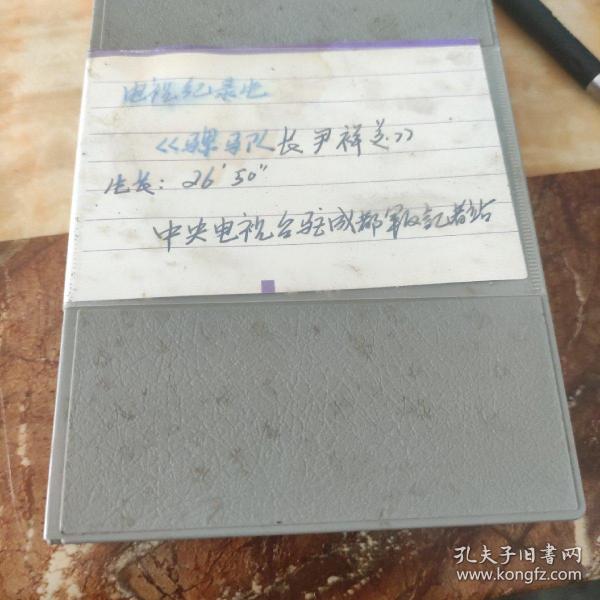 电视纪录片
《骡马队长尹祥美》
片长：26′50″
中央电视台驻成都军区記者站
孔夫子旧书网
www.kongfz.com